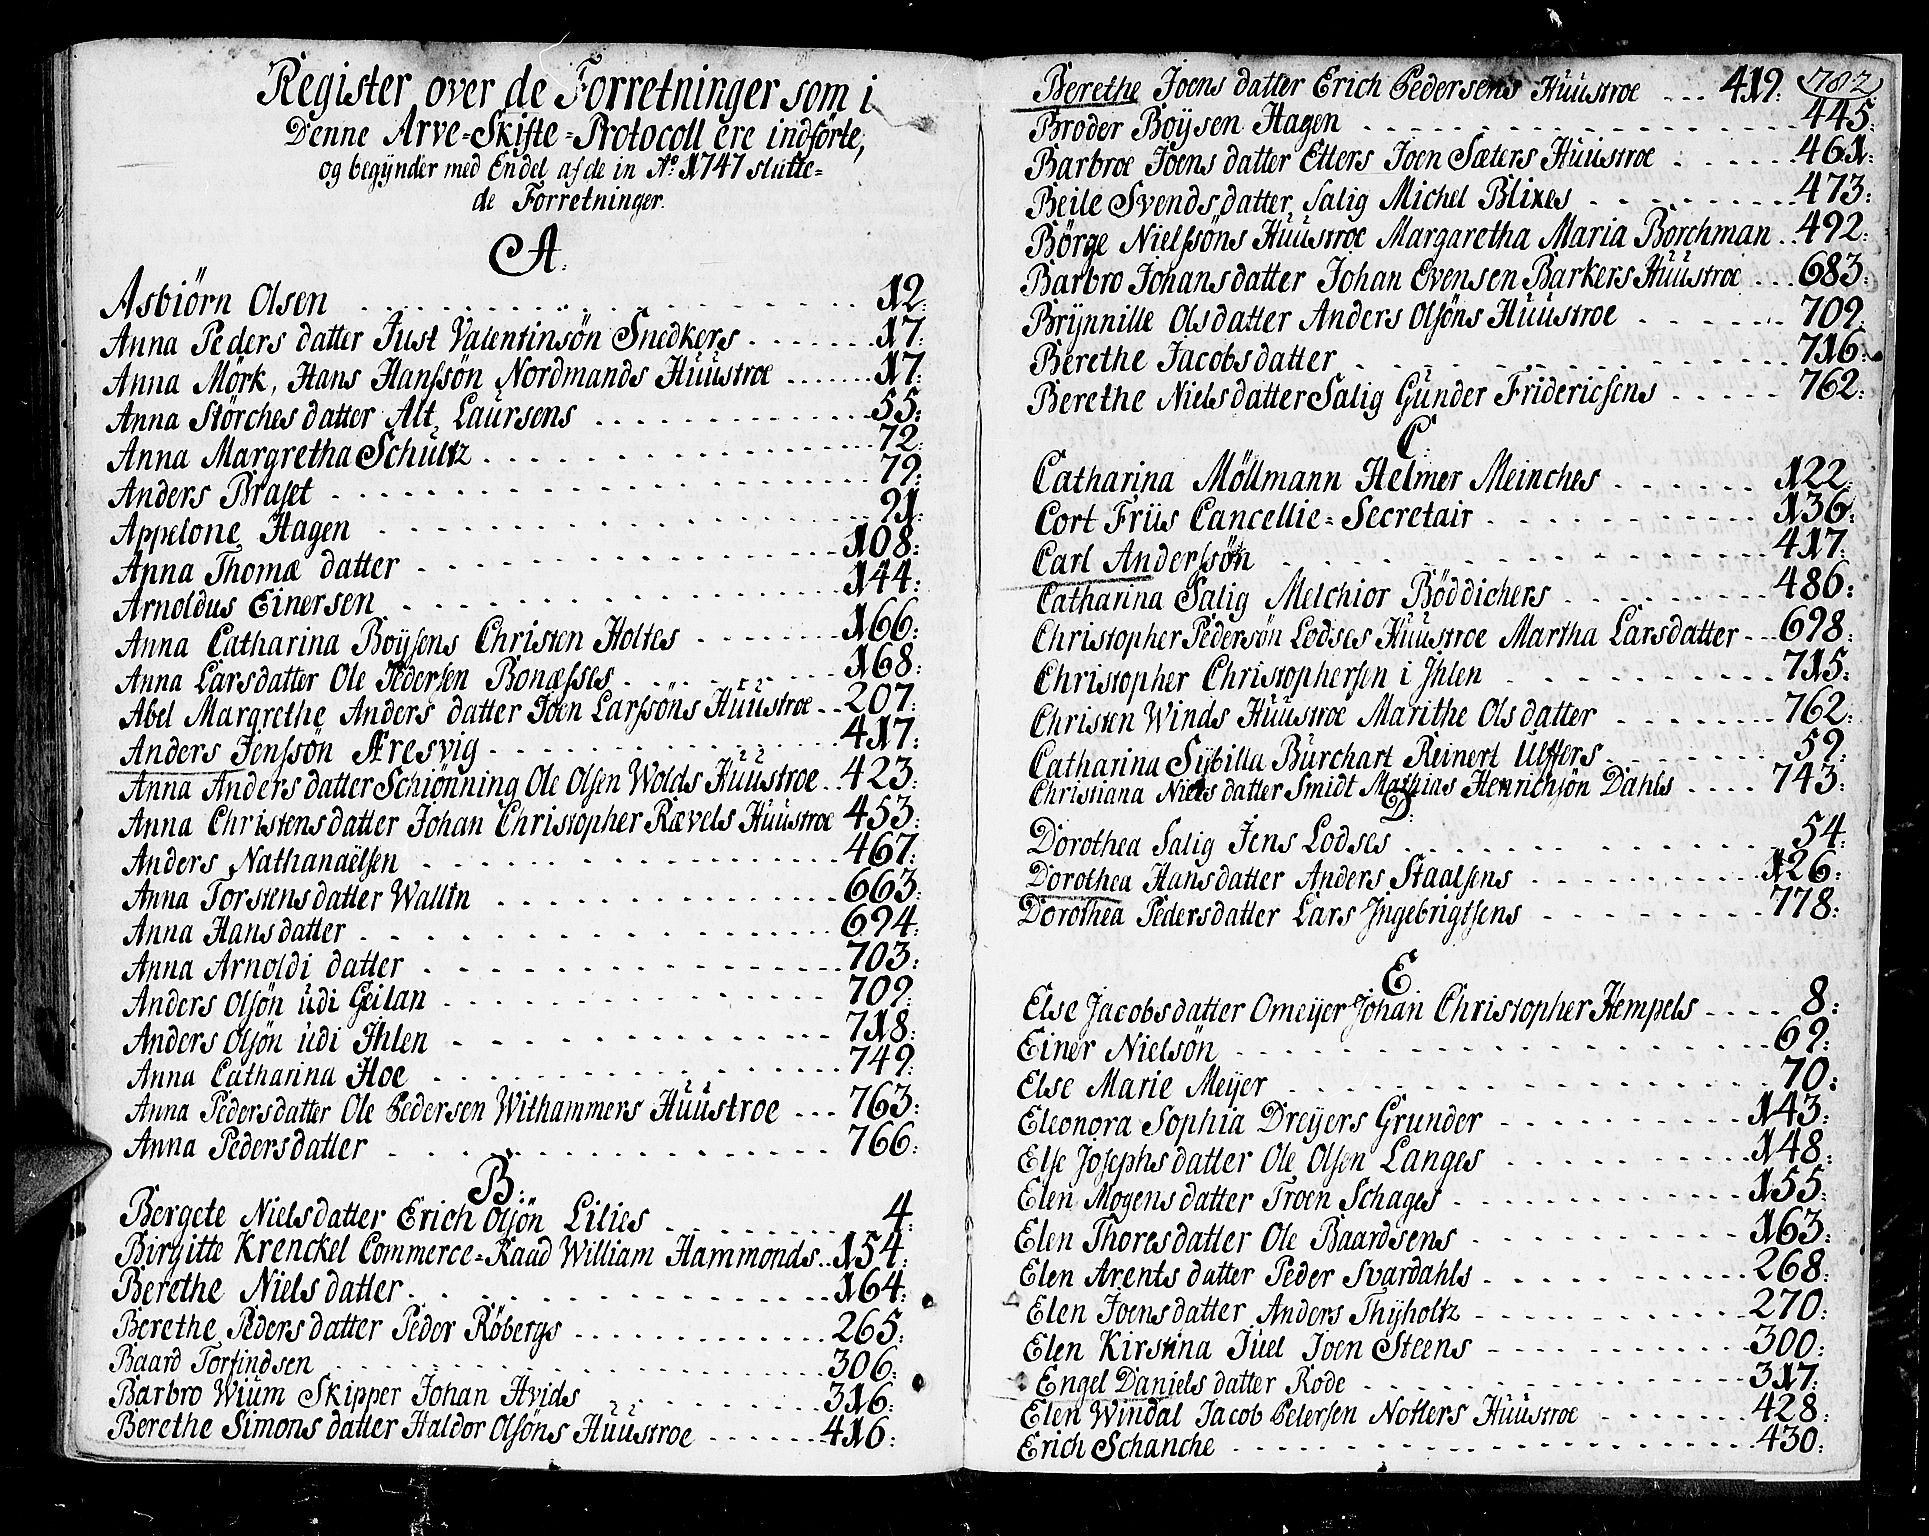 Register over de Forretninger som i
Denne Arve=Skifte=Protocoll ere indförte,
og begÿnder med Endel af de in Aº 1747 slutte=
de Forretninger.
A.
Asbiörn Olsen 12:
Anna Peders datter Just Valentinsön Snedkers 17:
Anna Mörk, Hans Hanssön Nordmands Huustroe 17:
Anna Störches datter Alt. Laursens 55:
Anna Margretha Schultz 72:
Anders Braset 79:
Appelone Hagen 91:
Anna Thomæ datter 108:
Arnoldus Einersen 144:
Anna Catharina Boÿsens Christen Holtes 166:
Anna Larsdatter Ole Pedersen Bonæsses 168:
Abel Margrethe Anders datter Joen Larssöns Huustroe 207:
Anders Jenssön Æresvig 417:
Anna Anders datter Schiönning Ole Olsen Wolds Huustroe 423:
Anna Christensdatter Johan Christopher Rævels Huustroe 453:
Anders Nathanaëlsen 467:
Anna Torstensdatter Wallin 663:
Anna Hansdatter 694:
Anna Arnoldi datter 703:
Anders Olsön udi Geilan 709:
Anders Olsön udi Ihlen 718:
Anna Catharina Hoe 749:
Anna Pedersdatter Ole Pedersen Withammers Huustroe 763:
Anna Pedersdatter 766:
B:
Bergete Nielsdatter Erich Olsön Lilies 4:
Birgitte Krenckel Commerce=Raad William Hammonds 154:
Berethe Niels datter 164:
Berethe Peders datter Peder Röbergs 265:
Baard Torfindsen 306:
Barbro Wium Skipper Johan Hvids 316:
Berethe Simons datter Haldor Olsöns Huustroe 416:
782
Berethe Joens datter Erich Pedersens Huustroe 419:
Broder Boÿsen Hagen 445:
Barbroe Joens datter Etters Joen Sæters Huustroe 461:
Beile Svendsdatter Salig Michel Blixes 473:
Börge Nielssöns Huustroe Margaretha Maria Borchman 492:
Barbro Johansdatter Johan Evensen Barkers Huustroe 683:
Brÿnnille Olsdatter Anders Olsöns Huustroe 709:
Berethe Jacobsdatter 716:
Berethe Nielsdatter Salig Gunder Fridericsens 762:
C.
Catharina Möllmann Helmer Meinches 122:
Cort Friis Cancellie=Secretair 136:
Carl Anderssön 417:
Catharina Salig Melchior Böddichers 486:
Christopher Pedersön Lodses Huustroe Martha Larsdatter 698:
Christopher Christophersen i Ihlen 715:
Christen Winds Huustroe Marithe Olsdatter 762:
Catharina Sÿbilla Burchart Reinert Ulffers 59:
Christiana Niels datter Smidt Mathias Henrichsön Dahls 743:
D.
Dorothea Salig Jens Lodses 54:
Dorothea Hansdatter Anders Staalsens 126:
Dorothea Pedersdatter Lars Ingebrigtsens 778:
E.
Else Jacobsdatter Omeÿer Johan Christopher Hempels 8:
Einer Nielsön 69:
Else Marie Meÿer 70:
Eleonora Sophia Dreÿers Grunder 143:
Else Josephs datter Ole Olsen Langes 148:
Elen Mogens datter Troen Schages 155:
Elen Thoresdatter Ole Baardsens 163:
Elen Arents datter Peder Svardahls 268:
Elen Joensdatter Anders Thÿholtz 270:
Elen Kirstina Juel Joen Steens 300:
Engel Daniels datter Rode 317:
Elen Windal Jacob Petersen Notlers Huustroe 428:
Erich Schanche 430: